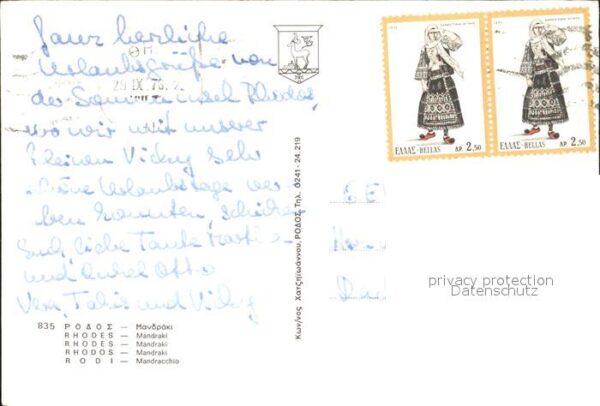 Ganz herzliche
Urlaubsgrüße von
der Sonneninsel Rhodos,
wo wir mit unserer
kleinen Vicky sehr
schöne Urlaubstage ver-
leben konnten, schicken
Euch, liebe Tante
und Onkel Otto
Vera, und Vicky
835 ΡΟΔΟΣ — Μανδράκι
RHODES — Mandraki
RHODES — Mandraki
RHODOS — Mandraki
RODI — Mandracchio
Κων/νος Χατζηϊωάννου, ΡΟΔΟΣ, Τηλ. 0241-24.219
ΕΛΛΑΣ-HELLAS ΔΡ. 2,50
ΕΛΛΑΣ-HELLAS ΔΡ. 2,50
privacy protection
Datenschutz